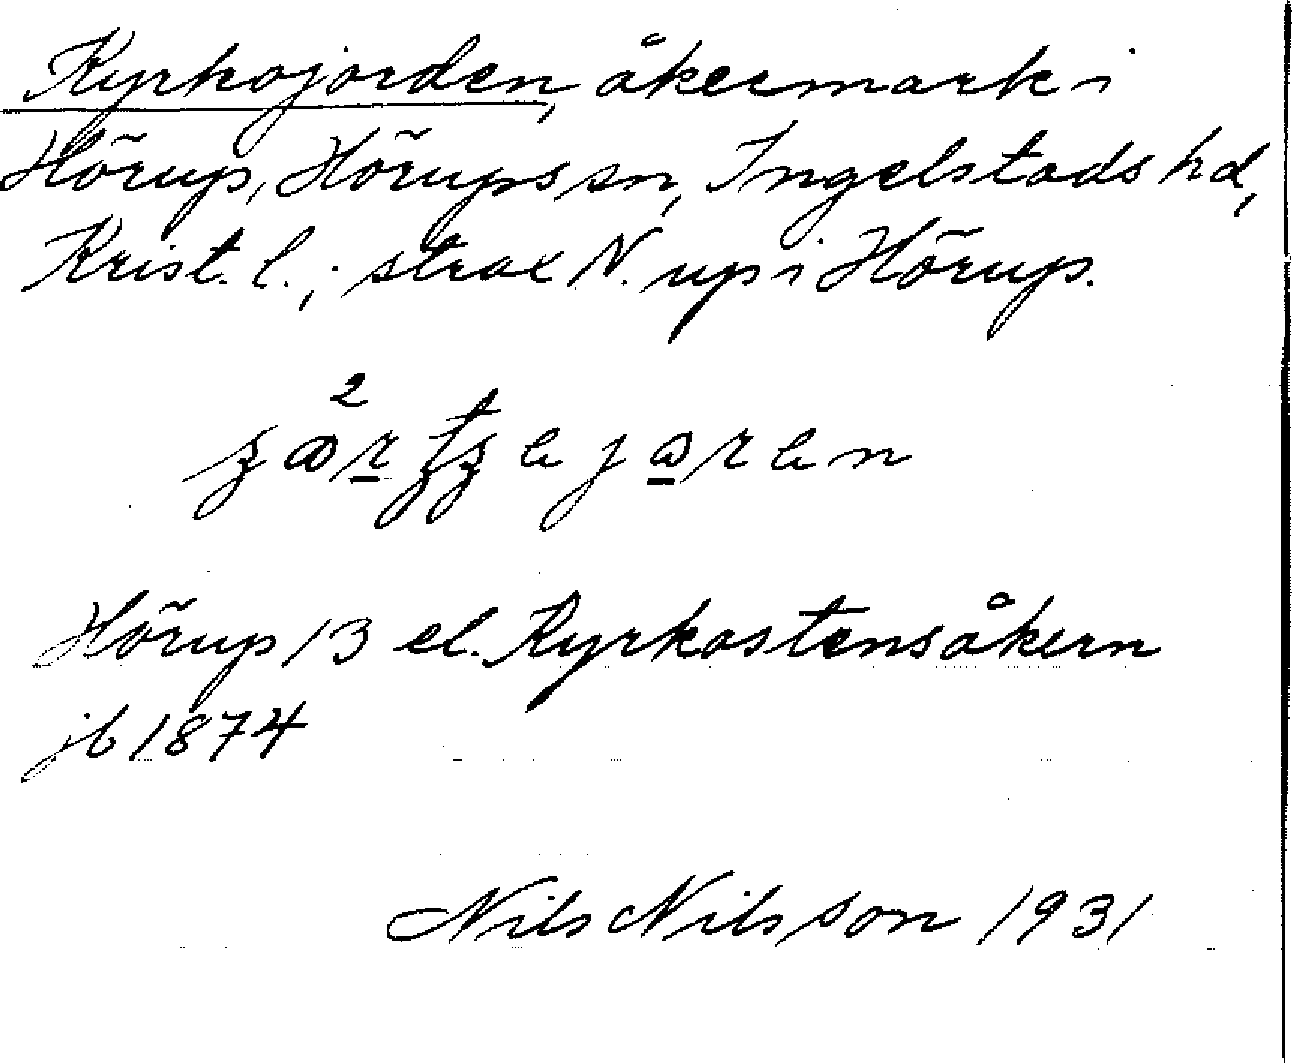 Kyrkojorden, åkermark i
Hörup, Hörups sn, Ingelstads hd,
Krist. l.; strax N. up i Hörup.
Hörup 13 el. Kyrkostensåkern
jb 1874
Nils Nilsson 1931